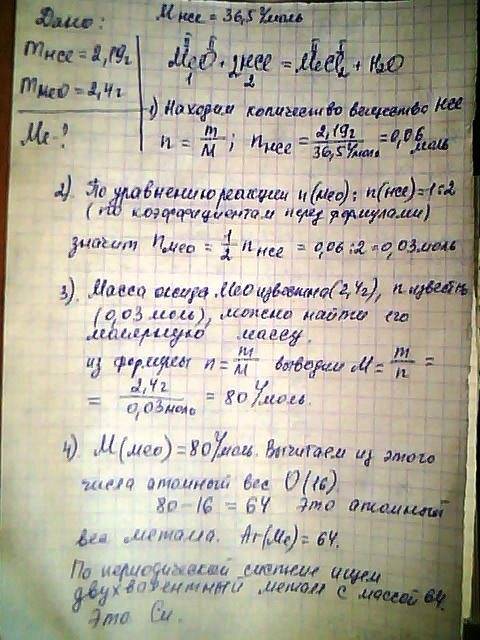 Дано:
mHCl = 2,19г
mMeO = 2,4г
Me-?
MHCl = 36,5 г/моль
II II II I
MeO + 2HCl = MeCl2 + H2O
1 2
1) Находим количество вещества HCl
n = m/M ; nHCl = 2,19г/36,5г/моль = 0,06 моль
2) По уравнению реакции n(MeO) : n(HCl) = 1:2
(по коэффициентам перед формулами)
значит nMeO = 1/2 nHCl = 0,06 : 2 = 0,03 моль
3) Масса оксида MeO известна (2,4г), n известн
(0,03 моль), можно найти его
молярную массу.
из формулы n = m/M выводим M = m/n =
= 2,4г/0,03моль = 80 г/моль.
4) M(MeO) = 80 г/моль. Вычитаем из этого
числа атомный вес O (16).
80-16 = 64 Это атомный
вес метала. Ar(Me) = 64.
По периодической системе ищем
двухвалентный метал с массой 64.
Это Cu.